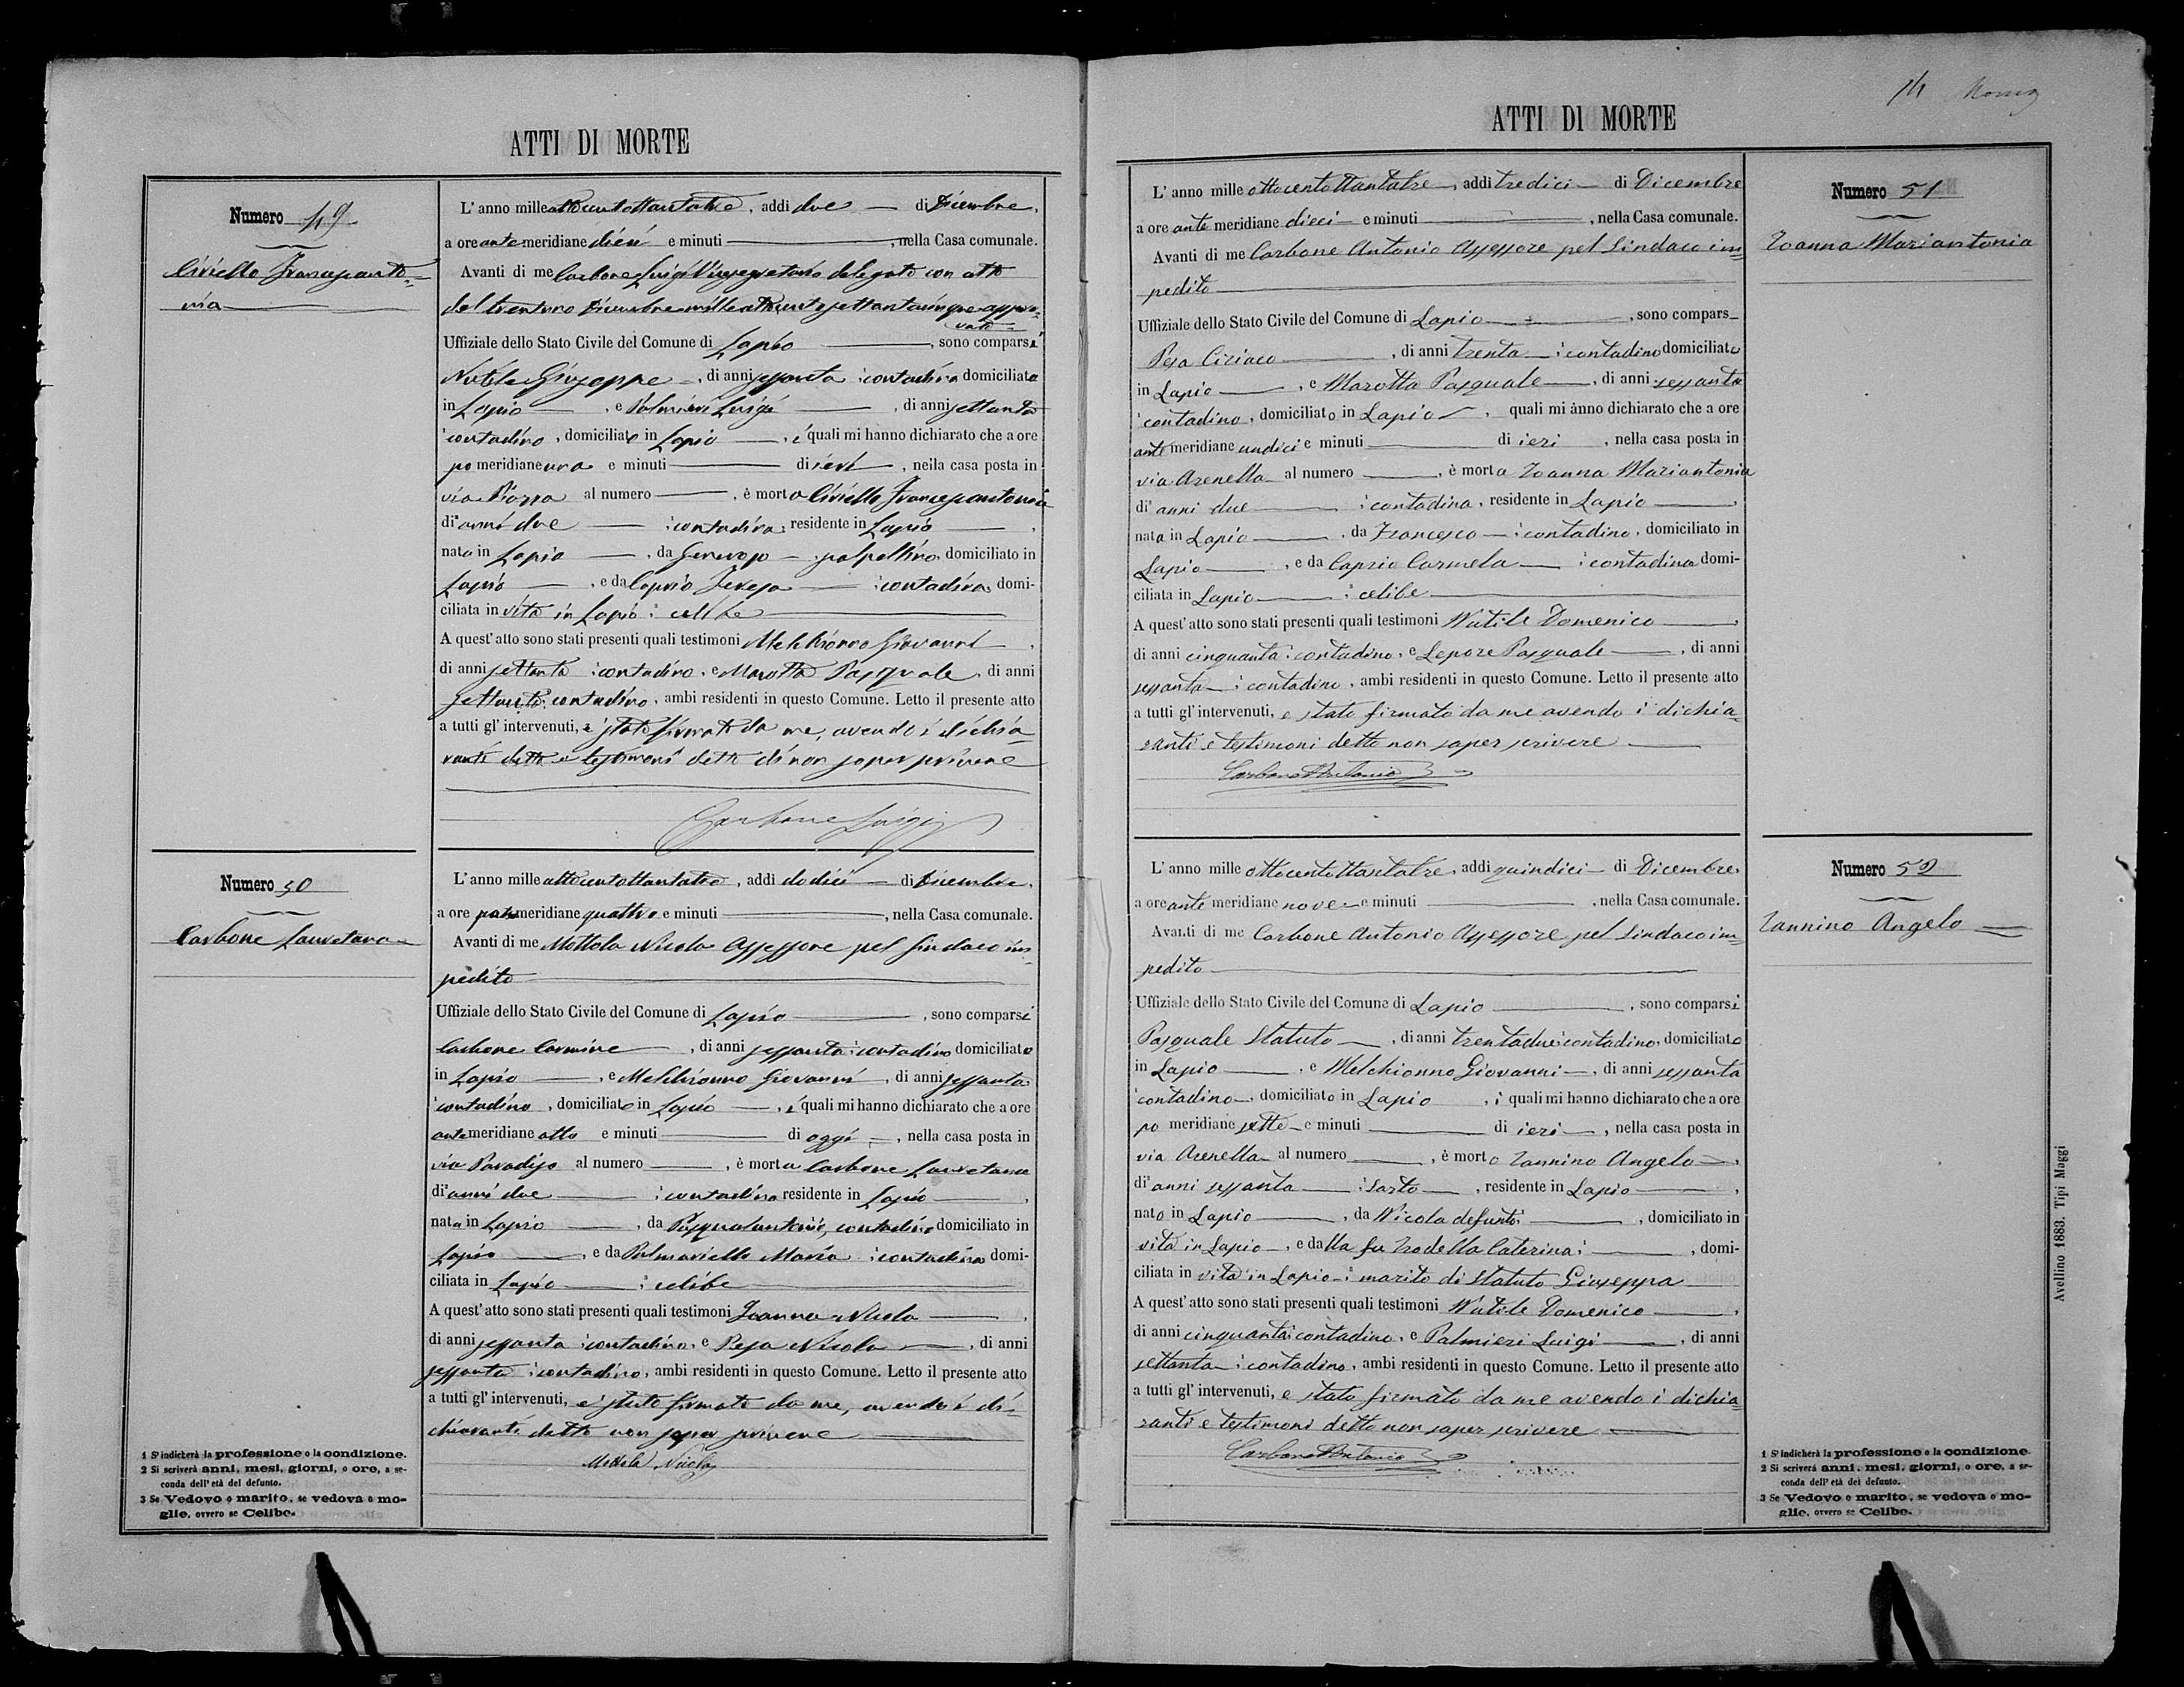 ATTI DI MORTE
Numero 49
Ciriello Francesanto=
nia
L' anno mille ottocentottantatre, addì due di Dicembre,
a ore antemeridiane dieci e minuti , nella Casa comunale.
Avanti di me Carbone Luigi Vicesegretario delegato con atto
del trentuno Dicembre mille ottocento settantacinque appro=
vato=
Uffiziale dello Stato Civile del Comune di Lapio , sono comparsi
Nutile Giuseppe , di anni sessanta contadino domiciliato
in Lapio , e Palmieri Luigi , di anni settanta
contadino , domiciliato in Lapio , i quali mi hanno dichiarato che a ore
pomeridiane una e minuti di ieri , nella casa posta in
via Piazza al numero , è morta Ciriello Francesantonia
di anni due contadina, residente in Lapio ,
nata in Lapio , da Generoso scalpellino, domiciliato in
Lapio , e da Caprio Teresa contadina, domi-
ciliata in vita in Lapio celibe
A quest' atto sono stati presenti quali testimoni Melchionno Giovanni ,
di anni settanta contadino, e Marotta Pasquale , di anni
settanta contadino, ambi residenti in questo Comune. Letto il presente atto
a tutti gl' intervenuti, è stato firmato da me, avendo i dichia=
ranti detto e testimoni detto di non saper scrivere
Carbone Luigi
Numero 50
Carbone Lauretana
L' anno mille ottocentottantatre , addì dodici di Dicembre,
a ore pomeridiane quattro e minuti , nella Casa comunale.
Avanti di me Mottola Nicola Assessore pel Sindaco im=
pedito
Uffiziale dello Stato Civile del Comune di Lapio , sono comparsi
Carbone Carmine , di anni sessanta contadino domiciliato
in Lapio , e Melchionno Giovanni , di anni sessanta
contadino , domiciliato in Lapio , i quali mi hanno dichiarato che a ore
antemeridiane otto e minuti di oggi , nella casa posta in
via Paradiso al numero , è morta Carbone Lauretana
di anni due contadina residente in Lapio ,
nata in Lapio , da Pasqualantonio, contadino domiciliato in
Lapio , e da Palmariello Maria contadina domi-
ciliata in Lapio celibe
A quest' atto sono stati presenti quali testimoni Zoanna Nicola ,
di anni sessanta contadino, e Pesa Nicola , di anni
sessanta contadino, ambi residenti in questo Comune. Letto il presente atto
a tutti gl' intervenuti, è stato firmato da me, avendo i di=
chiaranti detto non saper scrivere
Mottola Nicola
1 S' indicherà la professione o la condizione.
2 Si scriverà anni, mesi, giorni, o ore, a se-
conda dell' età del defunto.
3 Se Vedovo o marito, se vedova o mo-
glie, ovvero se Celibe.
14
ATTI DI MORTE
Numero 51
Zoanna Mariantonia
L' anno mille ottocentottantatre, addì tredici di Dicembre
a ore ante meridiane dieci e minuti , nella Casa comunale.
Avanti di me Carbone Antonio Assessore pel Sindaco im=
pedito
Uffiziale dello Stato Civile del Comune di Lapio , sono compars
Pesa Ciriaco , di anni trenta contadino domiciliato
in Lapio , e Marotta Pasquale , di anni sessanta
contadino, domiciliato in Lapio , quali mi ànno dichiarato che a ore
ante meridiane undici e minuti di ieri , nella casa posta in
via Arenella al numero , è morta Zoanna Mariantonia
di anni due contadina, residente in Lapio ,
nata in Lapio , da Francesco contadino, domiciliato in
Lapio , e da Caprio Carmela contadina domi-
ciliata in Lapio celibe
A quest' atto sono stati presenti quali testimoni Nutile Domenico ,
di anni cinquanta contadino, e Lepore Pasquale , di anni
sessanta contadino, ambi residenti in questo Comune. Letto il presente atto
a tutti gl' intervenuti, e stato firmato da me avendo i dichia=
ranti e testimoni detto non saper scrivere
Carbone Antonio
Numero 52
Zannino Angelo
L' anno mille ottocentottantatre, addì quindici di Dicembre,
a ore ante meridiane nove e minuti , nella Casa comunale.
Avanti di me Carbone Antonio Assessore pel Sindaco im=
pedito
Uffiziale dello Stato Civile del Comune di Lapio , sono comparsi
Pasquale Statuto , di anni trentadue contadino, domiciliato
in Lapio , e Melchionno Giovanni , di anni sessanta
contadino , domiciliato in Lapio , i quali mi hanno dichiarato che a ore
po meridiane sette e minuti di ieri , nella casa posta in
via Arenella al numero , è morto Zannino Angelo ,
di anni sessanta Sarto , residente in Lapio ,
nato in Lapio , da Nicola defunto , domiciliato in
vita in Lapio , e dalla fu Zodella Caterina , domi-
ciliata in vita in Lapio marito di Statuto Giuseppa
A quest' atto sono stati presenti quali testimoni Nutile Domenico ,
di anni cinquanta contadino, e Palmieri Luigi , di anni
settanta contadino, ambi residenti in questo Comune. Letto il presente atto
a tutti gl' intervenuti, e stato firmato da me avendo i dichia=
ranti e testimoni detto non saper scrivere
Carbone Antonio
1 S' indicherà la professione o la condizione
2 Si scriverà anni, mesi, giorni, o ore, a se-
conda dell' età del defunto.
3 Se Vedovo o marito, se vedova o mo-
glie, ovvero se Celibe.
Avellino 1883. Tipi Maggi